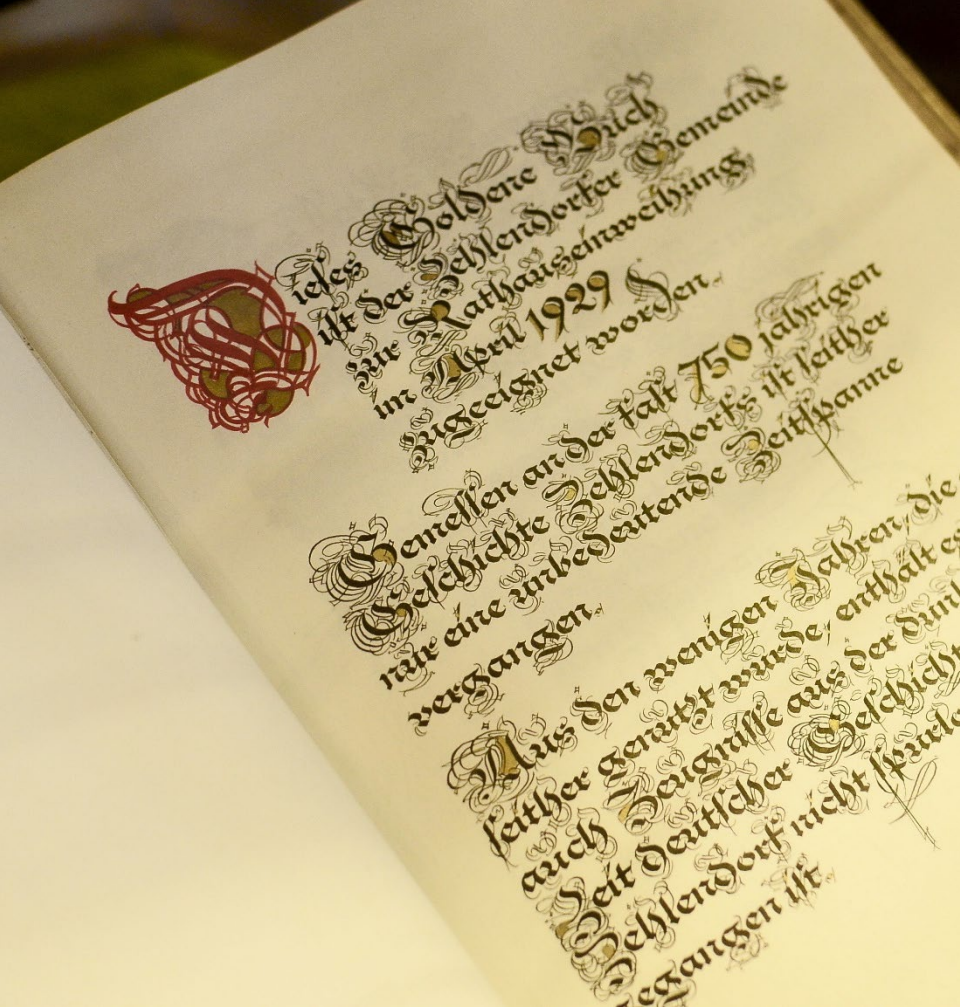 Dieses Goldene Buch
ist der Zehlendorfer Gemeinde
zur Rathauseinweihung
im April 1929
zugeeignet worden.
Gemessen an der fast 750 jährigen
Geschichte Zehlendorfs ist seither
nur eine unbedeutende Zeitspanne
vergangen.
Aus den wenigen Jahren, die
seither genutzt wurde, enthält es
auch Zeugnisse aus der
Zeit deutscher
Zehlendorf nicht
ist